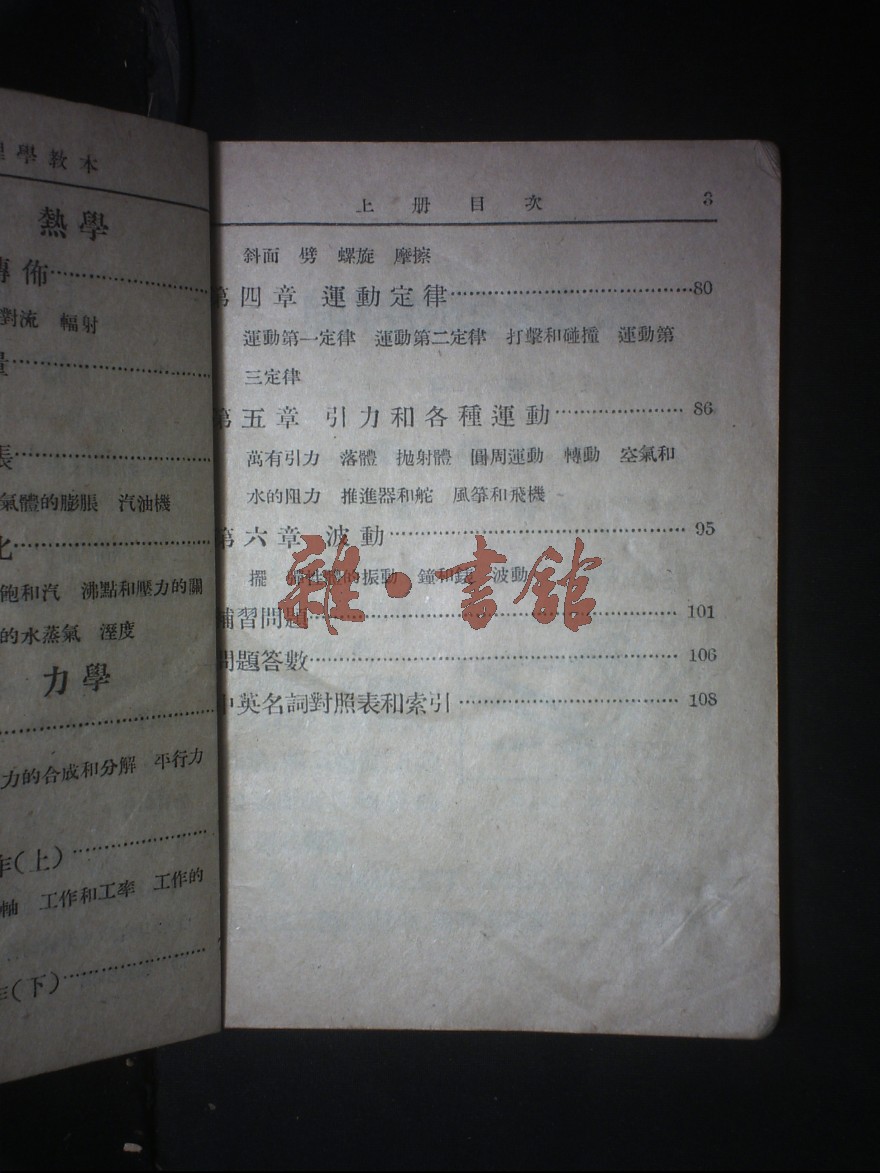 學教本
熱學
佈……
對流 輻射
量……
張……
氣體的膨脹 汽油機
化……
飽和汽 沸點和壓力的關
的水蒸氣 溼度
力學
力的合成和分解 平行力
作(上)……
軸 工作和工率 工作的
作(下)……
上冊目次 3
斜面 劈 螺旋 摩擦
第四章 運動定律……80
運動第一定律 運動第二定律 打擊和碰撞 運動第
三定律
第五章 引力和各種運動……86
萬有引力 落體 拋射體 圓周運動 轉動 空氣和
水的阻力 推進器和舵 風箏和飛機
第六章 波動……95
擺 彈性體的振動 鐘和錶 波動
補習問題……101
問題答數……106
中英名詞對照表和索引……108
雜·書館